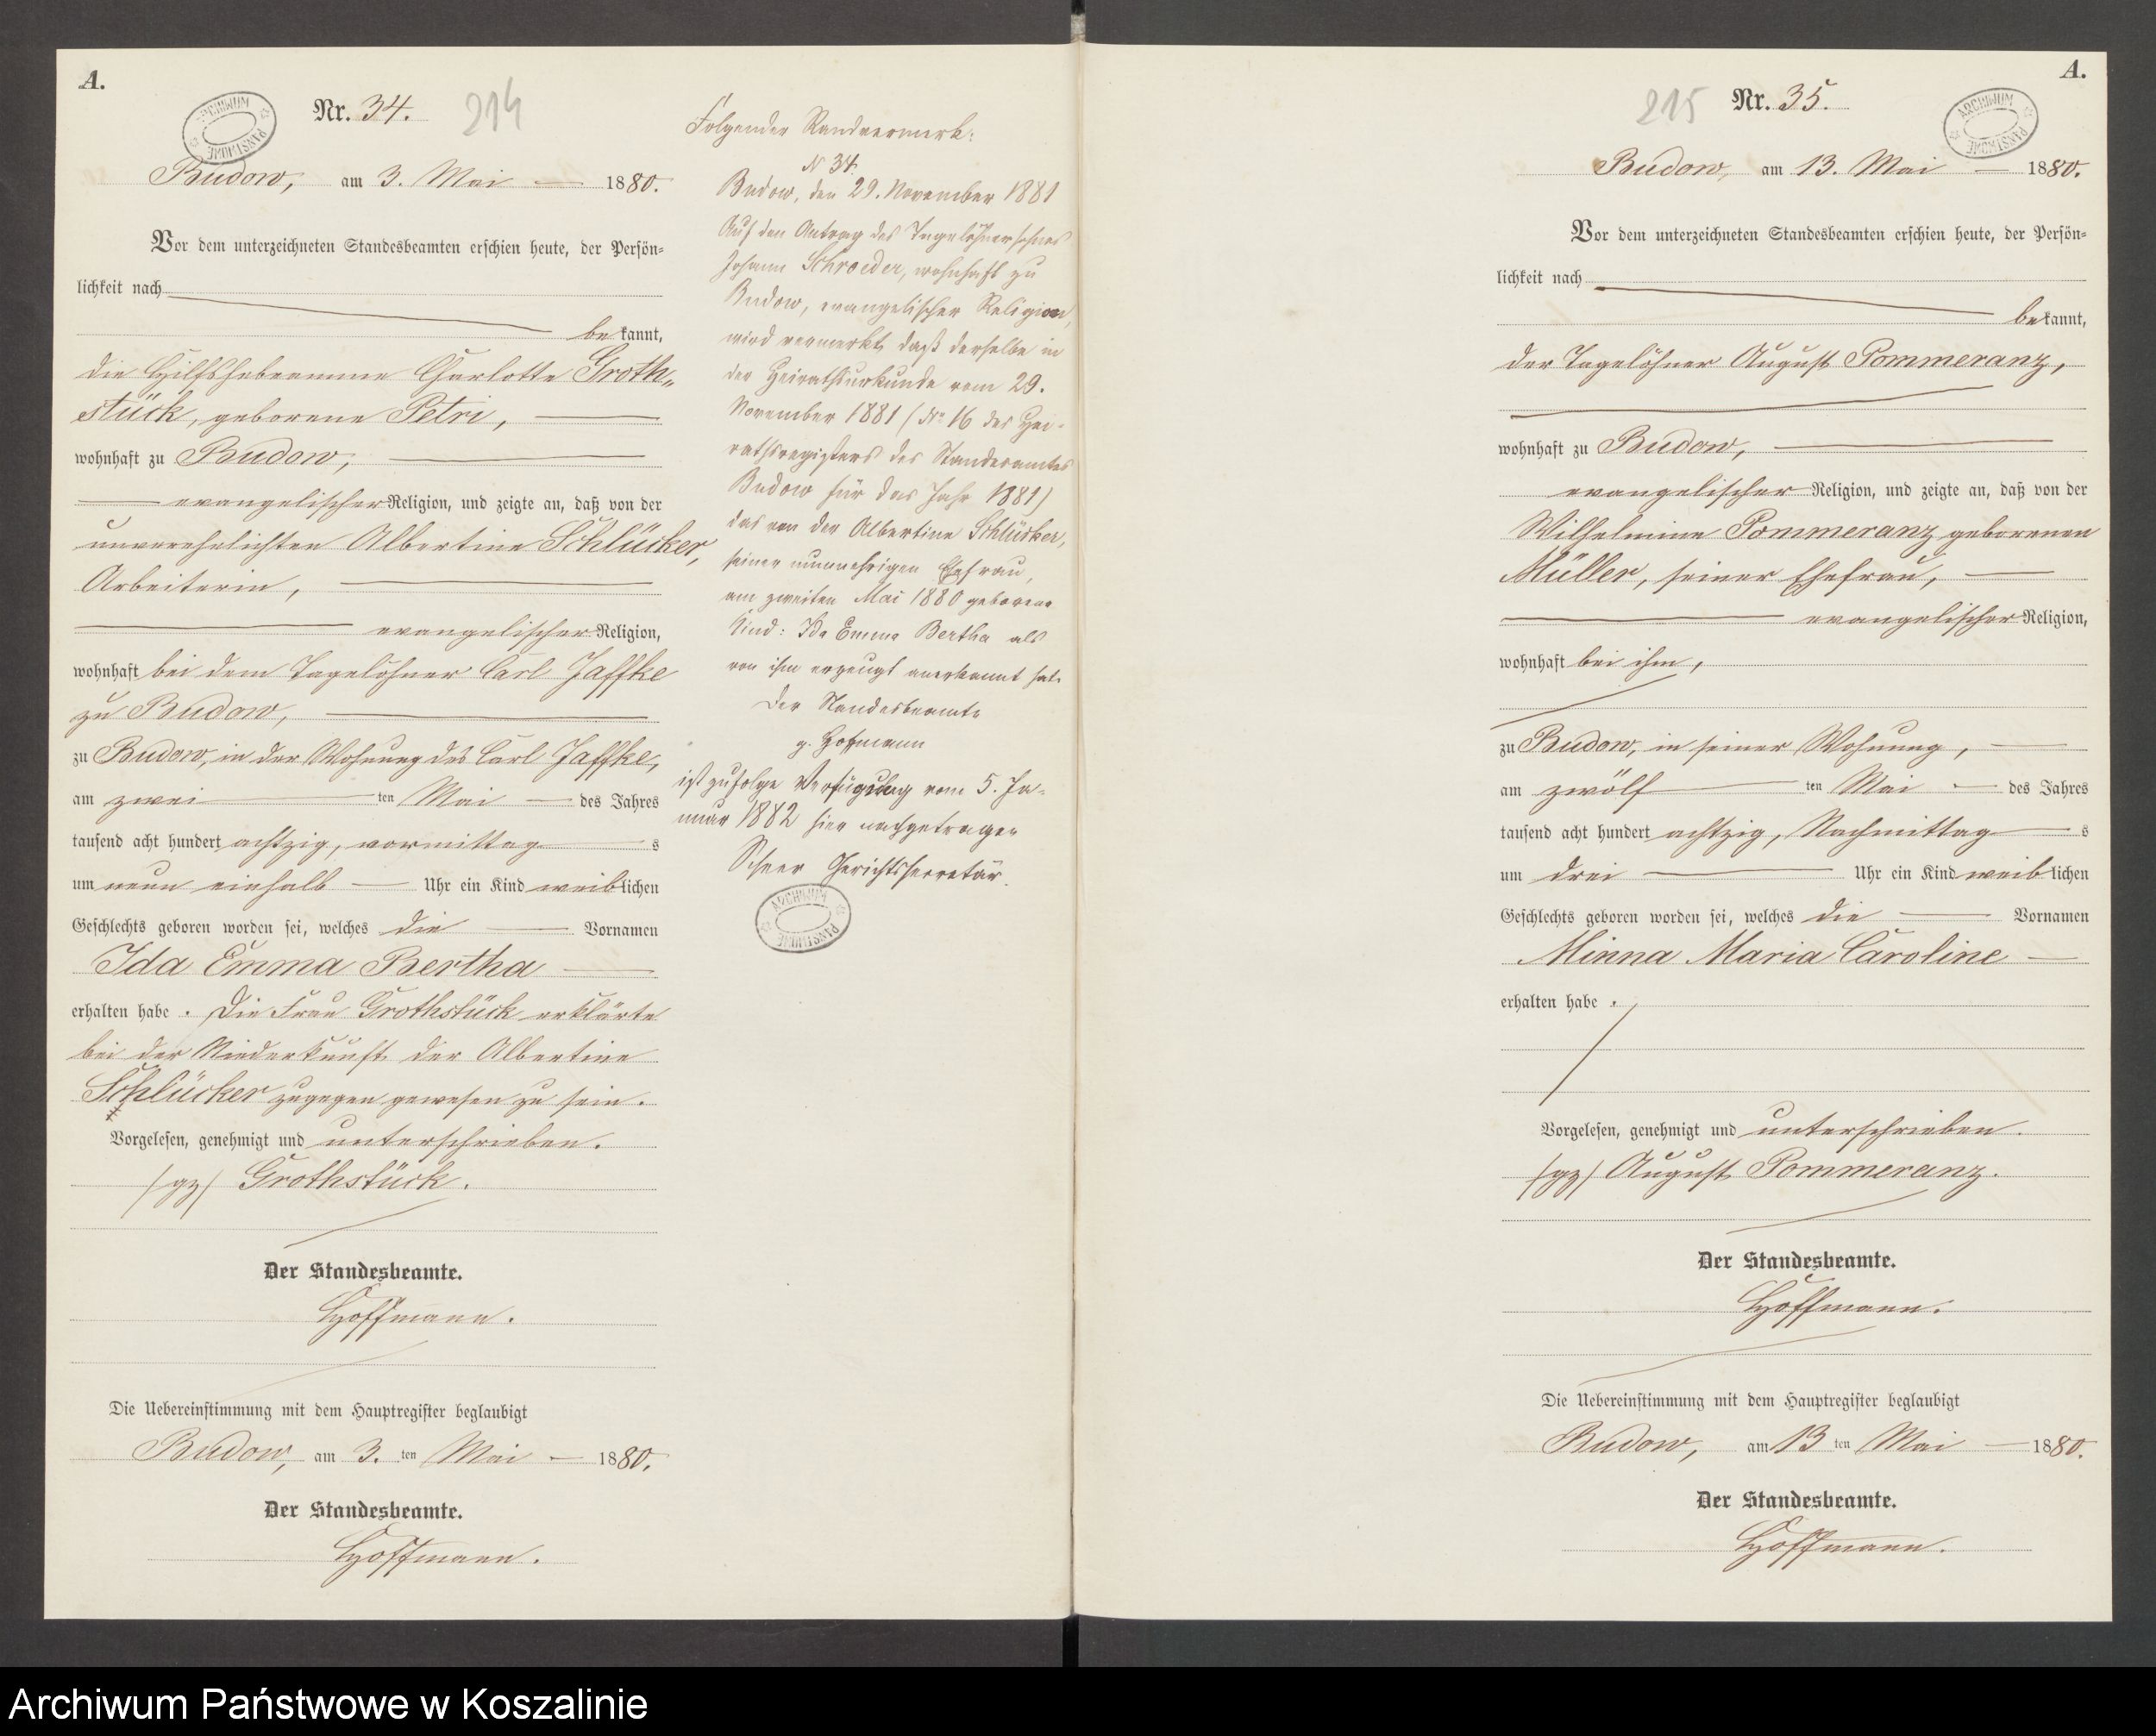 A.
ARCHIWUM PAŃSTWOWE
Nr. 34.
214
Budow, am 3. Mai 1880.
Vor dem unterzeichneten Standesbeamten erschien heute, der Persön-
lichkeit nach
bekannt,
die Hilfshebeamme Charlotte Groth-
stück, geborene Petri,
wohnhaft zu Budow,
evangelischer Religion, und zeigte an, daß von der
unverehelichten Albertine Schlücker,
Arbeiterin,
evangelischer Religion,
wohnhaft bei dem Tagelöhner Carl Jaffke
zu Budow,
zu Budow, in der Wohnung des Carl Jaffke,
am zwei ten Mai des Jahres
tausend acht hundert achtzig, vormittag s
um neun einhalb Uhr ein Kind weiblichen
Geschlechts geboren worden sei, welches die Vornamen
Ida Emma Bertha
erhalten habe. Die Frau Grothstück erklärte
bei der Niederkunft der Albertine
Schlücker zugegen gewesen zu sein.
Vorgelesen, genehmigt und unterschrieben.
/gz/ Grothstück.
Der Standesbeamte.
Hoffmann.
Die Uebereinstimmung mit dem Hauptregister beglaubigt
Budow, am 3. ten Mai 1880.
Der Standesbeamte.
Hoffmann.
Folgender Randvermerk:
N 34.
Budow, den 29. November 1881
Auf den Antrag des Tagelöhnersohnes
Johann Schroeder, wohnhaft zu
Budow, evangelischer Religion,
wird vermerkt, daß derselbe in
der Heirathsurkunde vom 29.
November 1881 (No 16 des Hei-
rathsregisters des Standesamtes
Budow für das Jahr 1881)
das von der Albertine Schlücker,
seiner nunmehrigen Ehefrau,
am zweiten Mai 1880 geborene
Kind: Ida Emma Bertha als
von ihm erzeugt anerkannt hat.
Der Standesbeamte
g. Hoffmann
ist zufolge Verfügung vom 5. Ja-
nuar 1882 hier nachgetragen
Gerichtssecretär.
ARCHIWUM PAŃSTWOWE
A.
ARCHIWUM PAŃSTWOWE
215
Nr. 35.
Budow, am 13. Mai 1880.
Vor dem unterzeichneten Standesbeamten erschien heute, der Persön-
lichkeit nach
bekannt,
der Tagelöhner August Pommeranz,
wohnhaft zu Budow,
evangelischer Religion, und zeigte an, daß von der
Wilhelmine Pommeranz geborenen
Müller, seiner Ehefrau,
evangelischer Religion,
wohnhaft bei ihm,
zu Budow, in seiner Wohnung,
am zwölf ten Mai des Jahres
tausend acht hundert achtzig, Nachmittag s
um drei Uhr ein Kind weiblichen
Geschlechts geboren worden sei, welches die Vornamen
Minna Maria Caroline
erhalten habe.
Vorgelesen, genehmigt und unterschrieben.
/gz/ August Pommeranz.
Der Standesbeamte.
Hoffmann.
Die Uebereinstimmung mit dem Hauptregister beglaubigt
Budow, am 13 ten Mai 1880.
Der Standesbeamte.
Hoffmann.
Archiwum Państwowe w Koszalinie